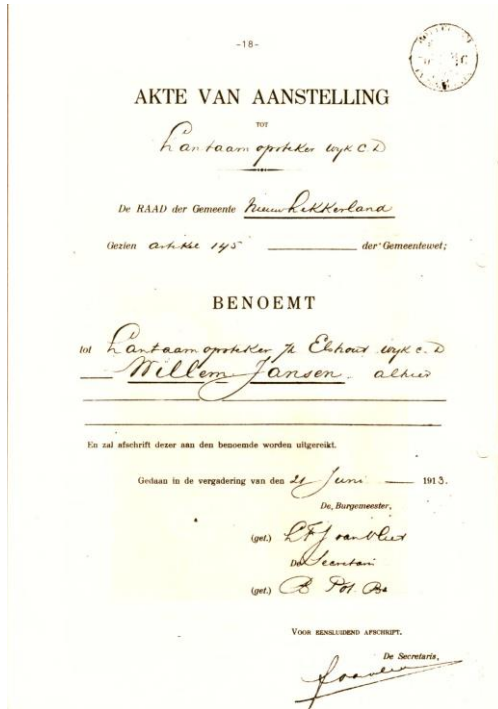 -18-
AKTE VAN AANSTELLING
TOT
Lantaarn opsteker wyk C. D
De RAAD der Gemeente Nieuw Lekkerland
Gezien artikel 145 der Gemeentewet;
BENOEMT
tot Lantaarn opsteker Elshout wyk c. D
Willem Jansen alhier
En zal afschrift dezer aan den benoemde worden uitgereikt.
Gedaan in de vergadering van den 21 Juni 1913.
De, Burgemeester,
(get.) van Vliet
De Secretaris
(get.) B Pot. Bz
VOOR EENSLUIDEND AFSCHRIFT.
De Secretaris,